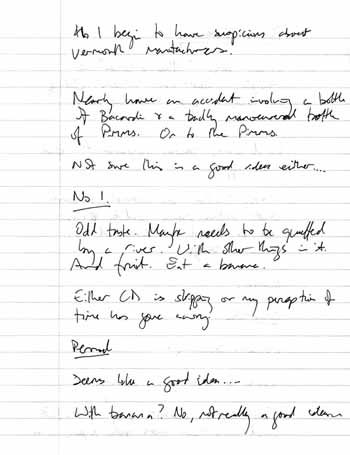 As I begin to have suspicions about
vermouth manufacturers.
Nearly have an accident involving a bottle
of Bacardi & a badly manoeuvered bottle
of Pimms. On to the Pimms.
Not sure this is a good idea either....
No 1.
Odd taste. Maybe needs to be quaffed
by a river. With other things in it.
And fruit. Eat a banana.
Either CD is skipping or my perception of
time has gone wrong
Pernod
Seems like a good idea....
With banana? No, not really a good idea